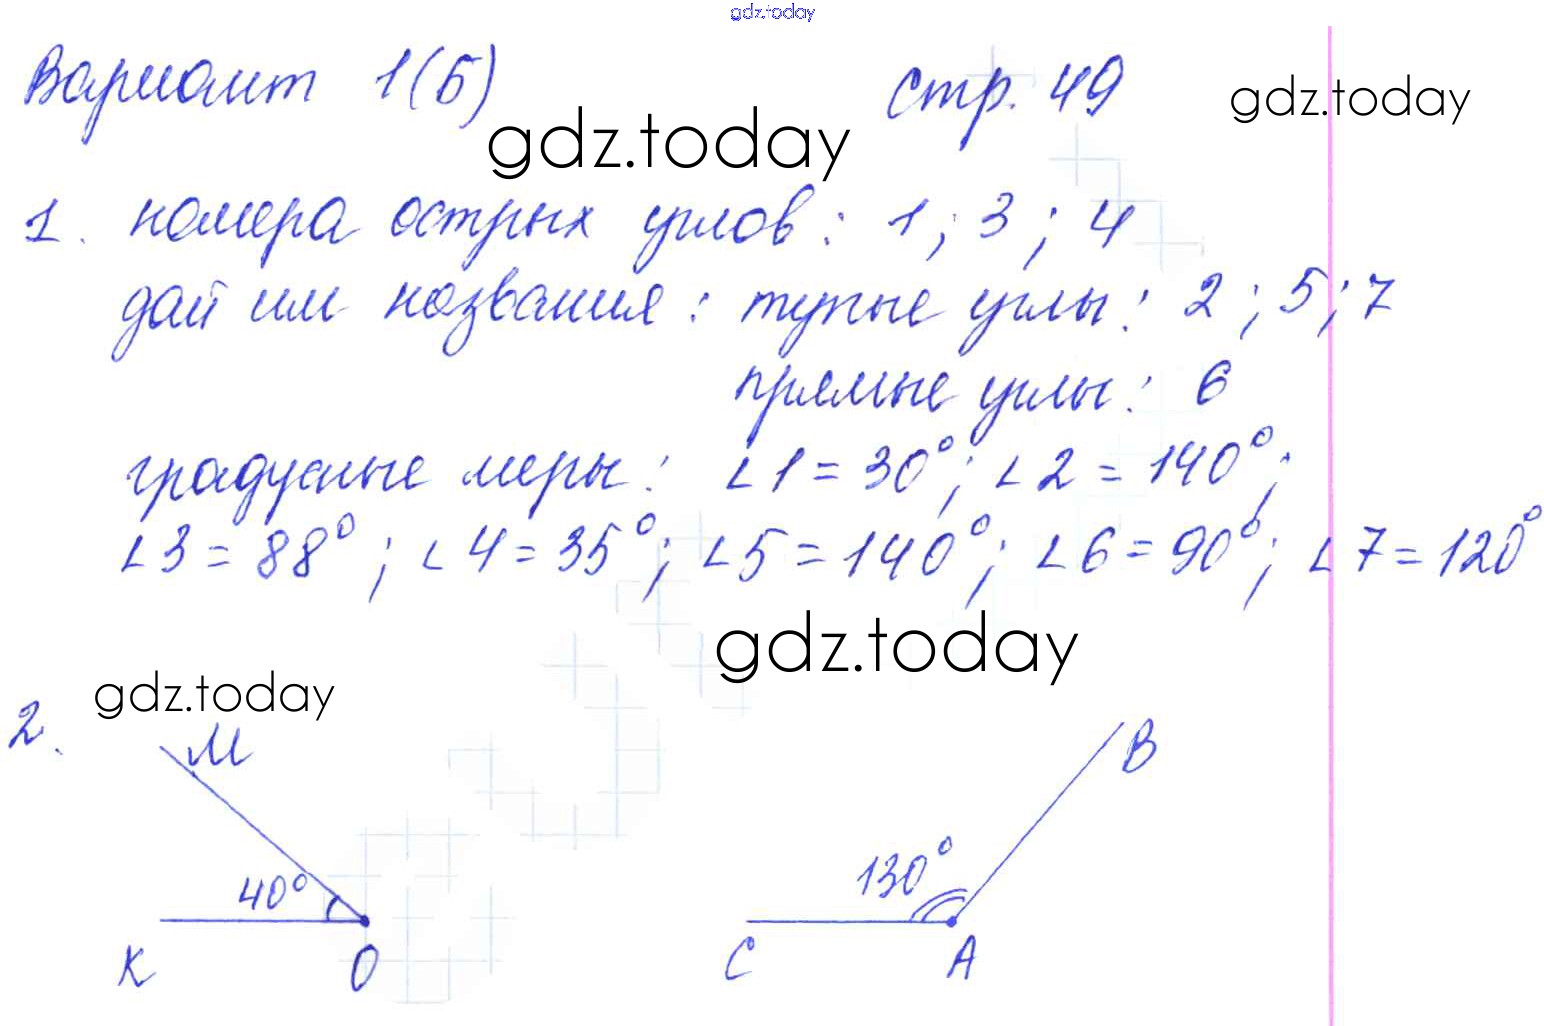 gdz.today
Вариант 1(Б) стр. 49 gdz.today
gdz.today
1. номера острых углов: 1; 3; 4
дай им названия: тупые углы: 2; 5; 7
прямые углы: 6
градусные меры: ∠1 = 30°; ∠2 = 140°;
∠3 = 88°; ∠4 = 35°; ∠5 = 140°; ∠6 = 90°; ∠7 = 120°
gdz.today
gdz.today
2.
М В
40° 130°
К О С А